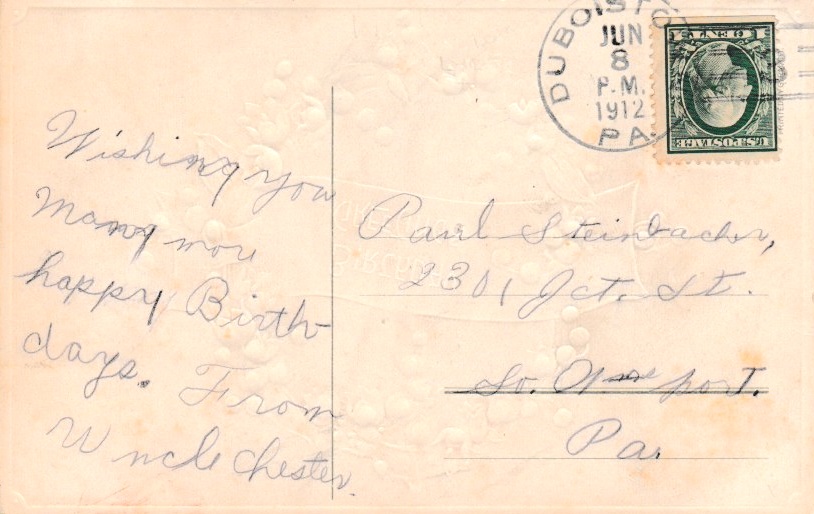 DUBOISTO
JUN
8
P.M.
1912
PA.
1 CENT 1
U.S. POSTAGE
Wishing you
Many more
happy Birth-
days. From
Uncle Chester.
Paul Steinbacher,
2301 Jct. St.
So. Wmsport.
Pa.